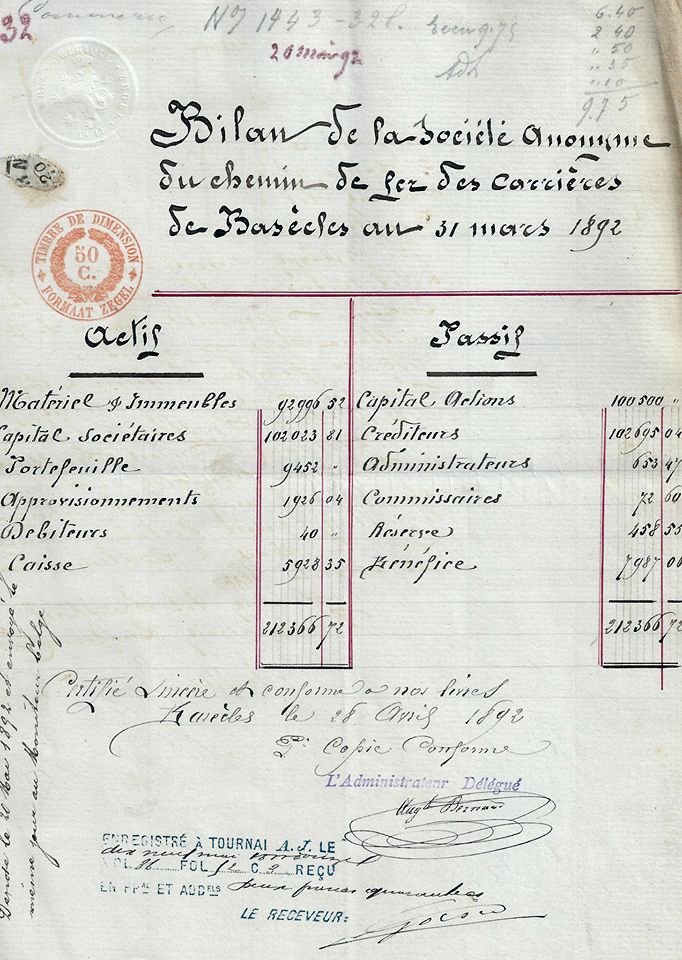 32 Commerce N° 1443 - 328
20 mai 92
6.40
2.40
" 50
" 35
" 10
9.75
TIMBRE DE DIMENSION
50
C.
FORMAAT ZEGEL
Bilan de la Société Anonyme
du chemin de fer des carrières
de Basècles au 31 mars 1892
Actif
Matériel & Immeubles 92996 52
Capital Sociétaires 102023 81
Portefeuille 9452 "
Approvisionnements 1926 04
Débiteurs 40 "
Caisse 5928 35
212366 72
Passif
Capital Actions 100500 "
Créditeurs 102695 04
Administrateurs 653 47
Commissaires 72 60
Réserve 458 55
Bénéfice 7987 06
212366 72
Certifié sincère et conforme à nos livres
Basècles le 28 Avril 1892
Pr Copie Conforme
L'Administrateur Délégué
Augte Bernard
ENREGISTRÉ À TOURNAI A. J. LE
dix neuf mai
VOL 36 FOL 52 C 3 REÇU
EN PPAL ET ADDELS deux francs quarante
LE RECEVEUR:
Déposé le 20 Mai 1892 et envoyé le
même jour au Moniteur belge